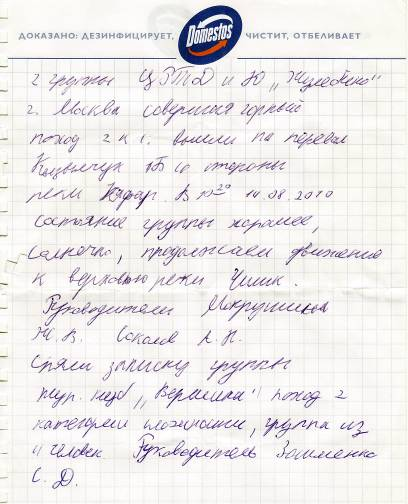 ДОКАЗАНО: ДЕЗИНФИЦИРУЕТ, Domestos ЧИСТИТ, ОТБЕЛИВАЕТ
2 группы ЦДТ и Ю „Жулебино"
г. Москва совершая горный
поход 2 к.с. вышли на перевал
1Б со стороны
реки Кяфар. В 10 20 14.08.2010
состояние группы хорошее,
солнечно, продолжаем движение
к верховью реки
Руководители
Ю. В. Соколов А. Н.
Сняли записку группы
тур. клуб „Вершина" поход 2
категории сложности, группа из
11 человек Руководитель
С. Д.